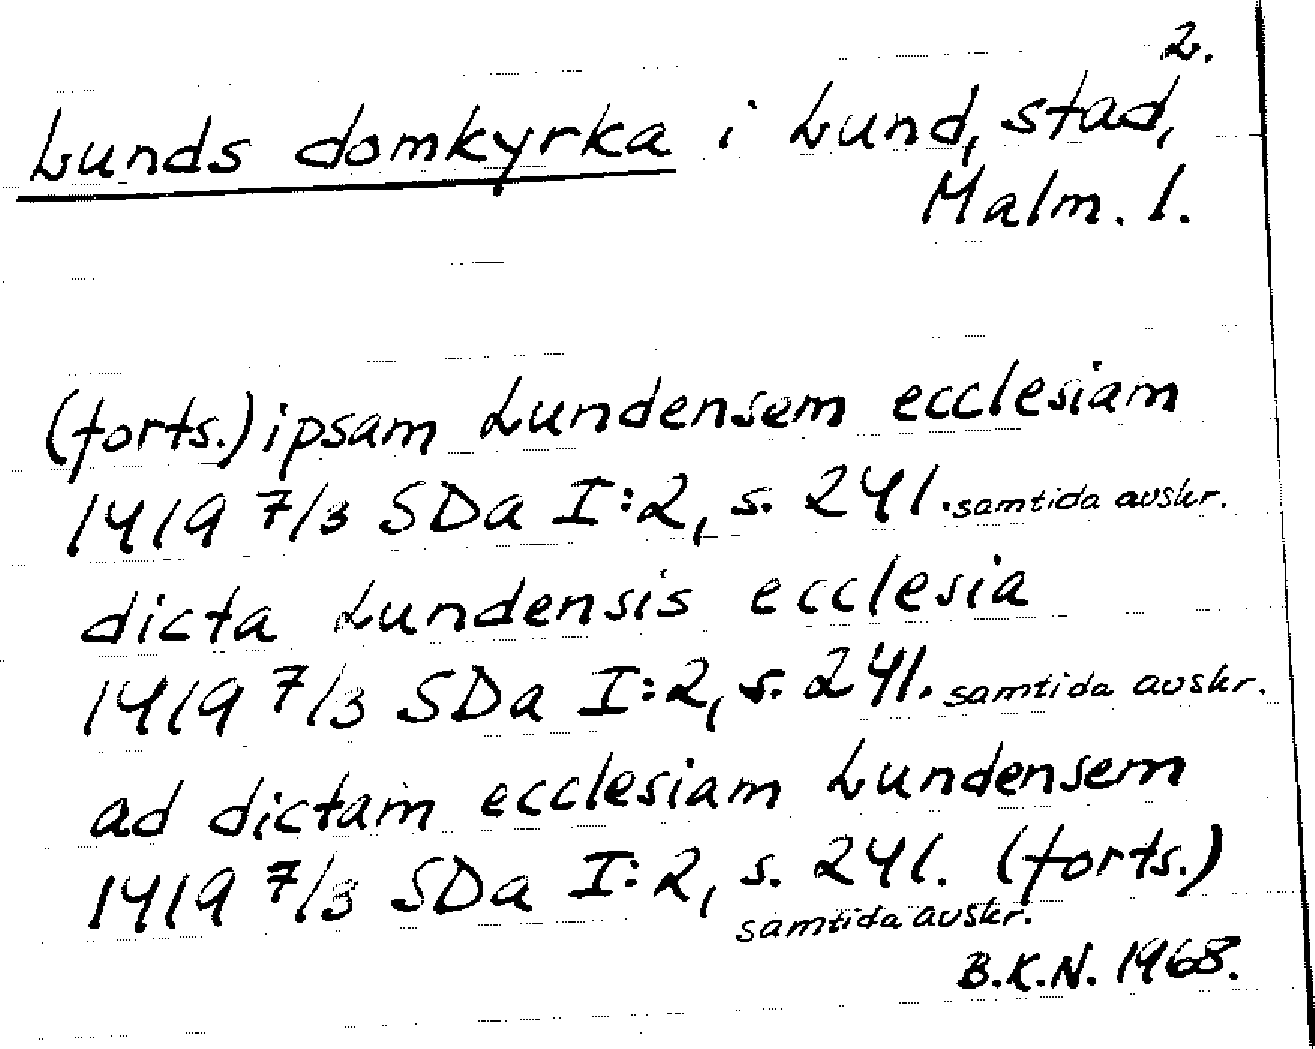 2.
Lunds domkyrka i Lund, stad,
Malm. l.
(forts.) ipsam Lundensem ecclesiam
1419 7/3 SDa I:2, s. 241. samtida avskr.
dicta Lundensis ecclesia
1419 7/3 SDa I:2, s. 241. samtida avskr.
ad dictam ecclesiam Lundensem
1419 7/3 SDa I:2, s. 241. (forts.)
samtida avskr.
B.K.N. 1968.